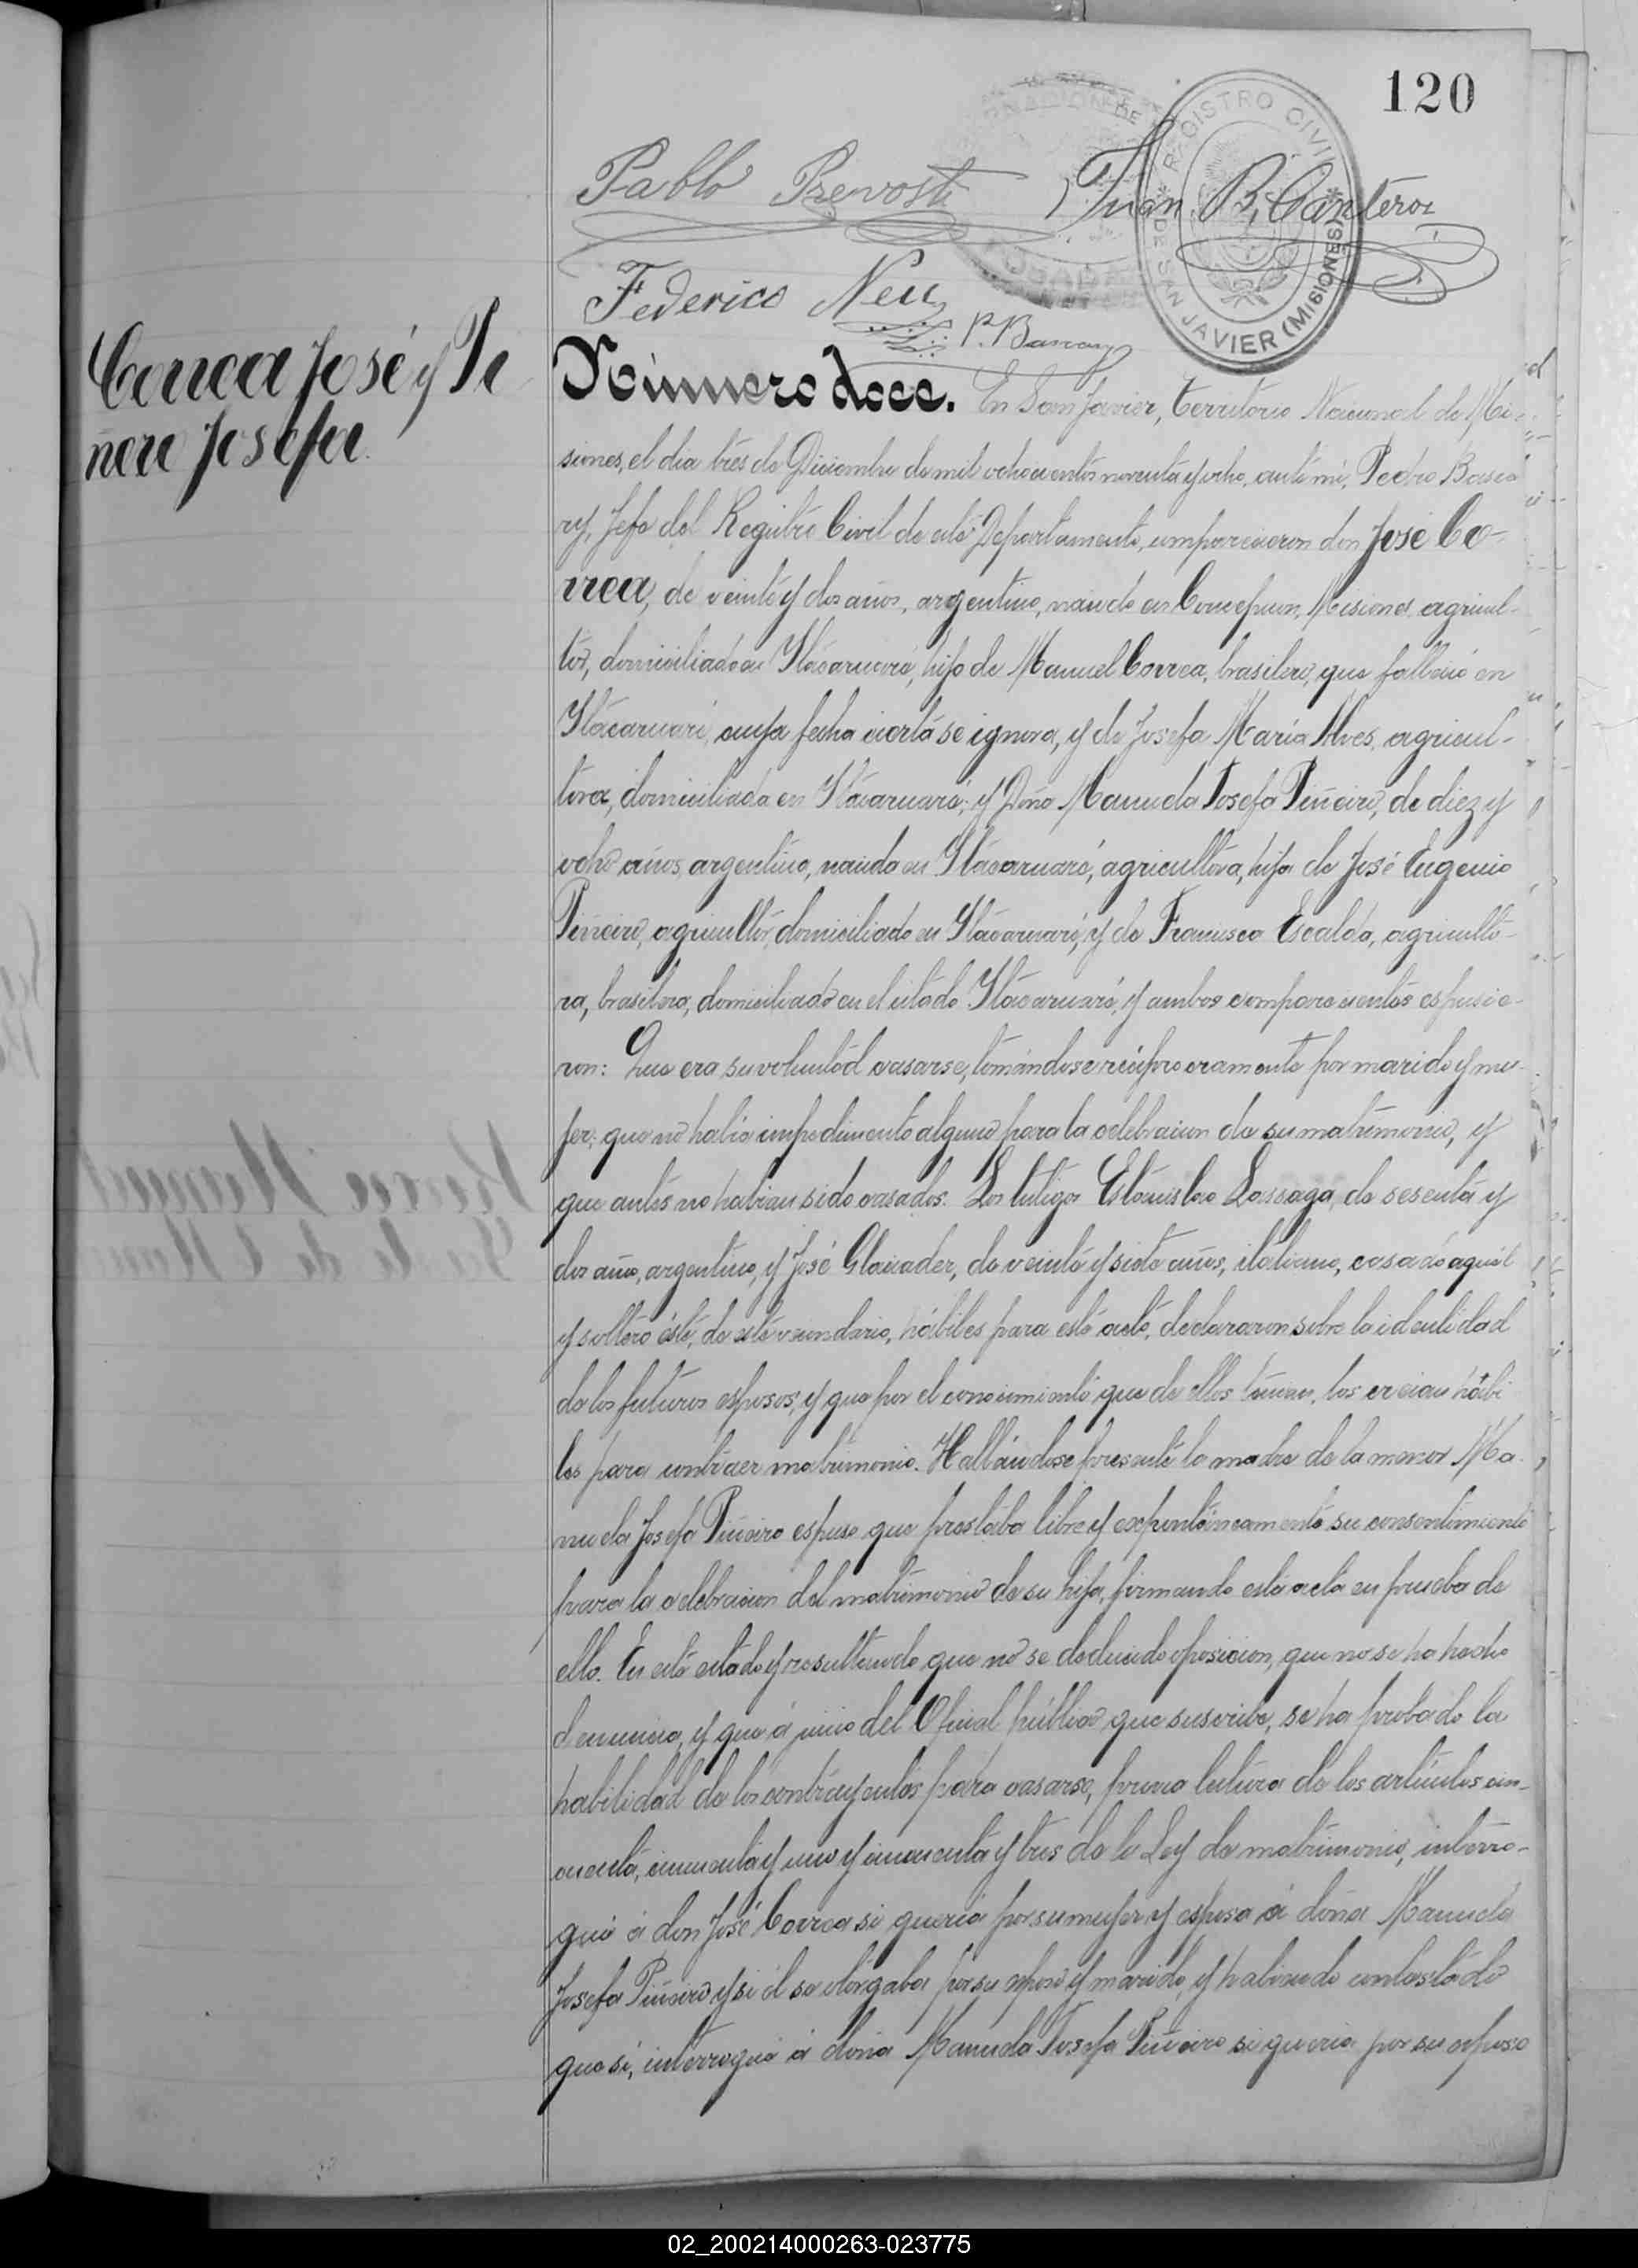 120
REGISTRO CIVIL
DE SAN JAVIER (MISIONES)
Pablo Prevosti
Juan B. Canteros
Federico Neu
Correa José y Pi
ñero Josefa.
Número doce. En San Javier, Territorio Nacional de Mi-
siones, el dia tres de Diciembre de mil ochocientos noventa y ocho, ante mi, Pedro
Jefe del Registro Civil de este Departamento, comparecieron don José Co-
rrea, de veinte y dos años, argentino, nacido en Concepcion, Misiones, agricul-
tor, domiciliado en Itacaruaré, hijo de Manuel Correa, brasilero, que falleció en
Itacaruaré, cuya fecha cierta se ignora, y de Josefa María Alves, agricul-
tora, domiciliada en Itacaruaré; y Doña Manuela Josefa Piñeiro, de diez y
ocho años, argentina, nacida en Itacaruaré, agricultora, hija de José Eugenio
Piñeiro, agricultor, domiciliado en Itacaruaré, y de Francisca Escalda, agriculto-
ra, brasilera, domiciliada en el citado Itacaruaré, y ambos comparecientes espusie-
ron: Que era su voluntad casarse, tomándose recíprocamente por marido y mu-
jer; que no habia impedimento alguno para la celebracion de su matrimonio, y
que antes no habian sido casados. Los testigos Estanislao Lassaga, de sesenta y
dos años, argentino, y José Glaicader, de veinte y siete años, italiano, casado aquél
y soltero éste, de este vecindario, hábiles para este acto, declararon sobre la identidad
de los futuros esposos, y que por el conocimiento que de ellos tienen, los creian hábi
les para contraer matrimonio. Hallándose presente la madre de la menor Ma-
nuela Josefa Piñeiro espuso que prestaba libre y expontáneamente su consentimiento
para la celebracion del matrimonio de su hija, firmando esta acta en prueba de
ello. En este estado y resultando que no se deducido oposicion, que no se ha hecho
denuncia, y que á juicio del Oficial público que suscribe, se ha probado la
habilidad de los contrayentes para casarse, previa lectura de los artículos cin-
cuenta, cincuenta y uno y cincuenta y tres de la Ley de matrimonio, interro-
gué á don José Correa si queria por su mujer y esposa á doña Manuela
Josefa Piñeiro y si él se otorgaba por su esposo y marido, y habiendo contestado
que si, interrogué á doña Manuela Josefa Piñeiro si queria por su esposo
02_200214000263-023775